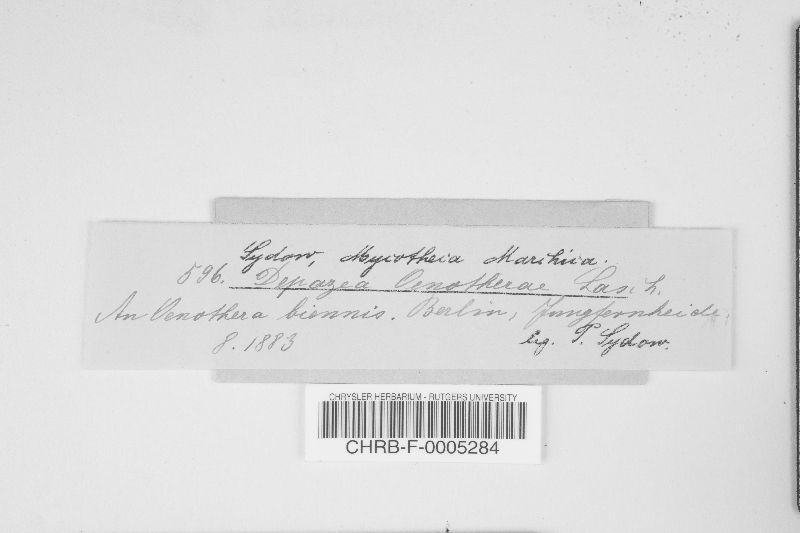 Sydow, Mycotheca Marchica.
596. Depazea Oenotherae Lasch.
An Oenothera biennis. Berlin, Jungfernheide,
8. 1883 leg. P. Sydow.
CHRYSLER HERBARIUM - RUTGERS UNIVERSITY
CHRB-F-0005284